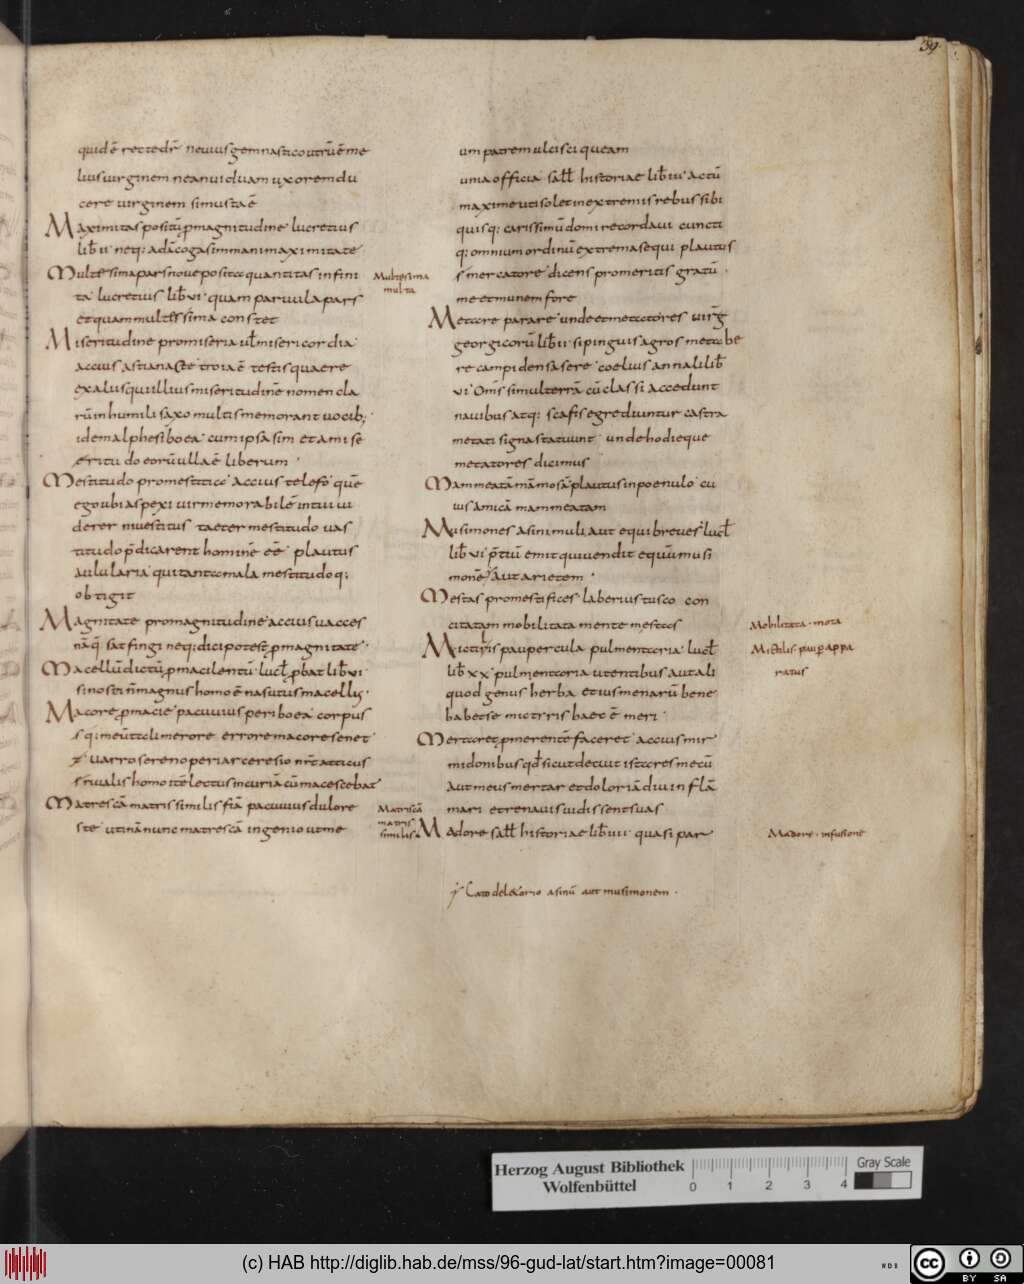 39
quid ē recte dr̄ neuius gemnastico utrū ē me
lius uirginem ne an uiduam uxorem du
cere uirginem si musta ē
Maximitas positū p magnitudine lucretius
lib̄ ii neq; adācogas immani maximitate
Multesima pars noue posita quantitas infini
ta lucretius lib̄ vi quam paruula pars
et quam multessima constet
Miseritudine pro miseria ul̄ misericordia
accius astianacte troia ē testis quaere
ex aliis qui illius miseritudinē nomen cla
rū in humili saxo multis memorant uocib;
idem alphesiboea cum ipsa sim et amise
eritudo eorū ulla ē liberum
Mestitudo pro mestitia accius telefo quē
ego ubi aspexi uir memorabilē intui ui
derer ni uestitus taeter mestitudo uas
titudo p̄dicarent hominē eē plautus
aulularia qui tanta mala mestitudoq;
obtigit
Magnitate pro magnitudine accius uacces
nāq̄ sat fingi neq; dici potest p magnitate
Macellū dictū p macilentū lucł p̄bat lib̄ vi
si nosti n̄ magnus homo ē nasutus macellus
Macore p macie pacuuius periboea corpus
sq; meū tali merore errore macore senet
uarro sereno periarceresio nr̄ atticus
riualis homo itē lectus incuriā cū macescebat
Matrescā matris similis fiā pacuuius dulore
ste utinā nunc matrescā ingenio ut me
Multesima
multa
Matriscā
matris
similis
um patrem ulcisci queam
unia officia sałł historiae lib̄ iu actū
maxime uti solet in extremis rebus sibi
quisq; carissimū domi recordaui cuncti
q; omnium ordinū extrema sequi plautus
mercatore dicens pro meritis gratū
me et munem fore
Metare parare unde et metatores uirḡ
georgicorū lib̄ ii si pinguis agros metabe
re campi densa sere coelius annali lib̄
vi Omś simul terrā cū classi accedunt
nauibus atq; scafis egrediuntur castra
metati signa statuunt unde hodieque
metatores dicimus
Mammeatā mā mosā plautus in poenulo cu
ius amicā mammeatam
Musimones asini muli aut equi breues lucł
lib̄ vi p̄tiū emit qui uendit equū musi
monē aut arietem
Mestas pro mestifices laberius tusco con
citatam mobilitata mente mestas
Mictiris paupercula pulmentaria lucł
lib̄ xx pulmentaria utentibus autali
quod genus herba et ius menarū bene
ba baetse mictyris haec ē meri
Mertaret p merente faceret accius mir
midonibus qd̄ si cut decuit istares mecū
aut meus mertar et dolor iādiu inflā
mari et renauis uidissent suas
Madore sałł historiae lib̄ iiii quasi par
Cato deletorio asinū aut musimonem
Mobilitata · mota
Mictilis · paup appa
ratus
Madore · infusione
Herzog August Bibliothek
Wolfenbüttel
0 1 2 3 4
Gray Scale
(c) HAB http://diglib.hab.de/mss/96-gud-lat/start.htm?image=00081
WDB
cc BY SA